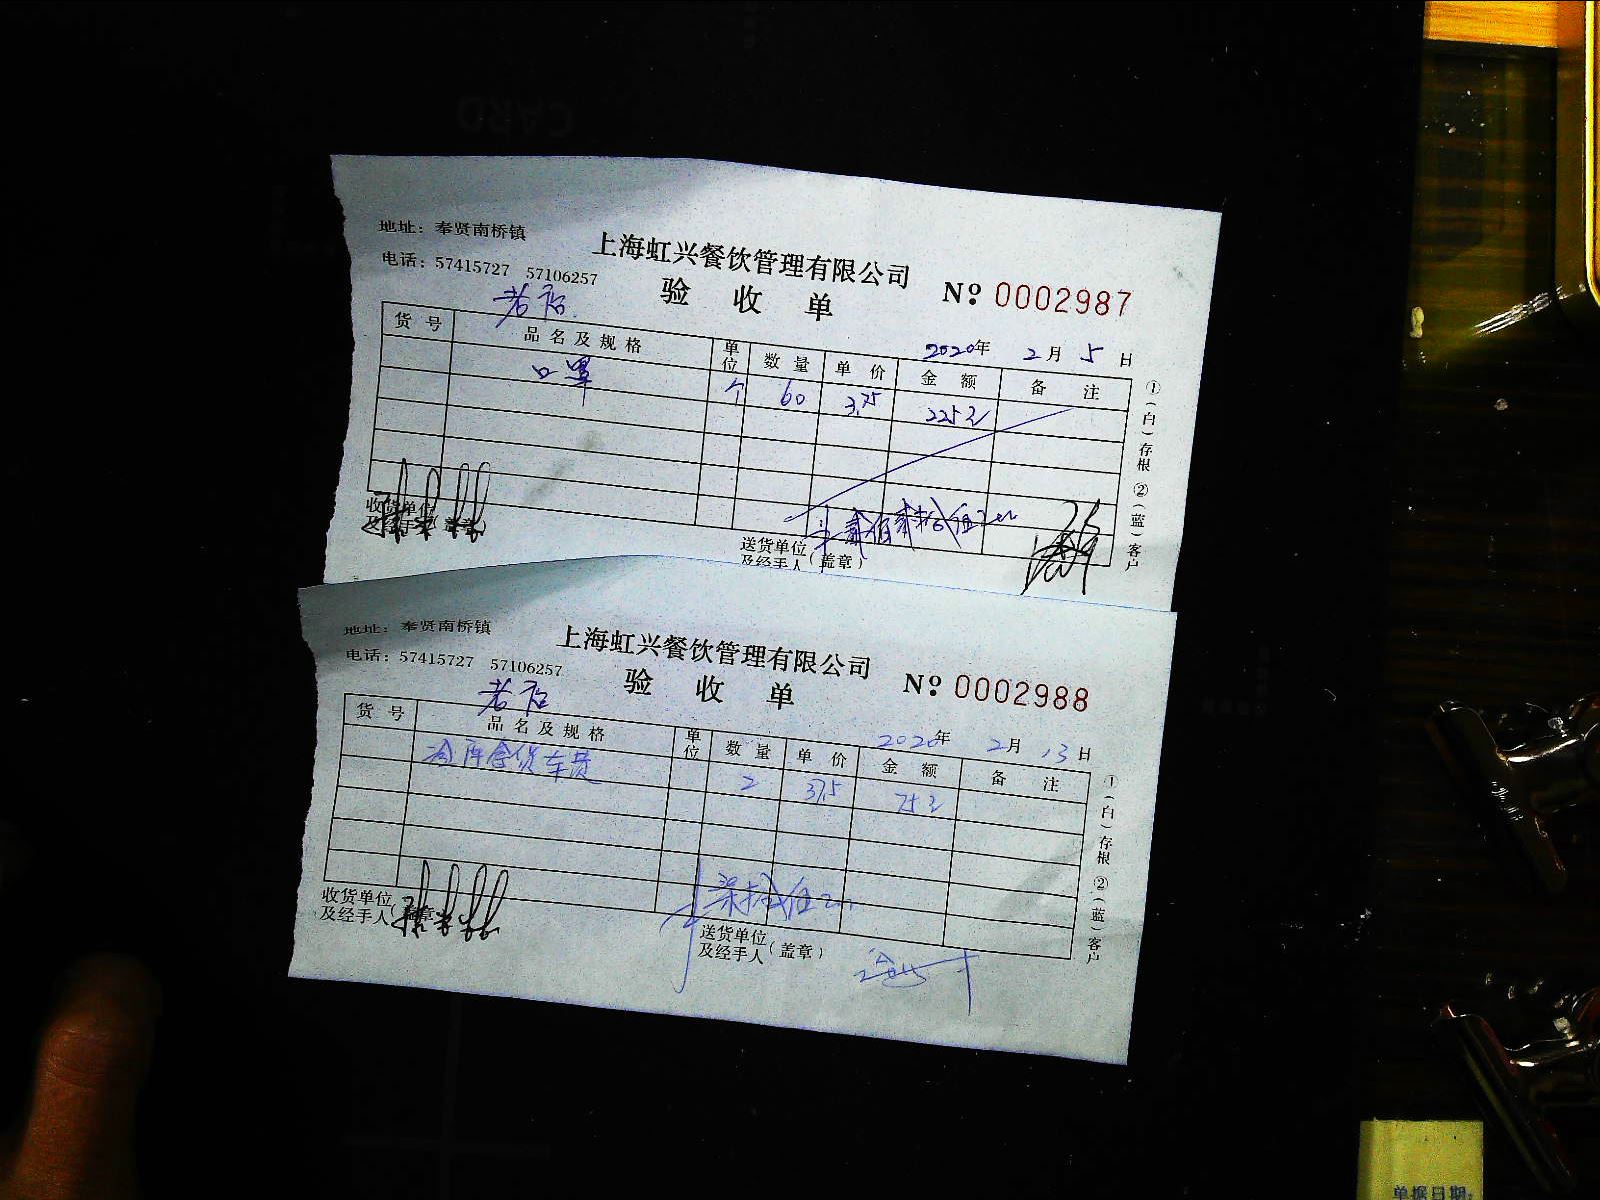 CARD
地址：奉贤南桥镇
上海虹兴餐饮管理有限公司
电话：57415727 57106257
验收单 № 0002987
老店
2020年 2月 5日
货号 品名及规格 单位 数量 单价 金额 备注
口罩 个 60 3.75 225元
贰佰贰拾伍元
收货单位及经手人（盖章）
送货单位及经手人（盖章）
①（白）存根 ②（蓝）客户
地址：奉贤南桥镇
上海虹兴餐饮管理有限公司
电话：57415727 57106257
验收单 № 0002988
老店
2020年 2月 13日
货号 品名及规格 单位 数量 单价 金额 备注
冷库拿货车费 2 37.5 75元
柒拾伍元
收货单位及经手人（盖章）
送货单位及经手人（盖章）
①（白）存根 ②（蓝）客户
单据日期：